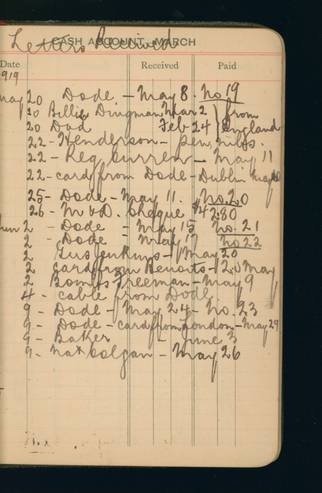 Letters Received
CASH ACCOUNT. MARCH
Date Received Paid
1919
May 20 Dode - May 8. No 19
20 Billie Dingman Mar 2 } from
20 Dad Feb 24 } England
22 - Henderson -
22 - Reg - May 11
22 - card from Dode - Dublin
25 - Dode - May 11. No. 20
26 - M & D. Cheque $42.80
Jun 2 - Dode - May 15 No. 21
2 Dode - May 17 No 22
2 Gus Jenkins - May 20
2 card from - 20 May
2 Freeman - May 9
4 - cable from Dode
9 - Dode - May 24 - No. 23
9 - Dode - card from London - May 29
9 - Baker - June 3
9 - Nat - May 26